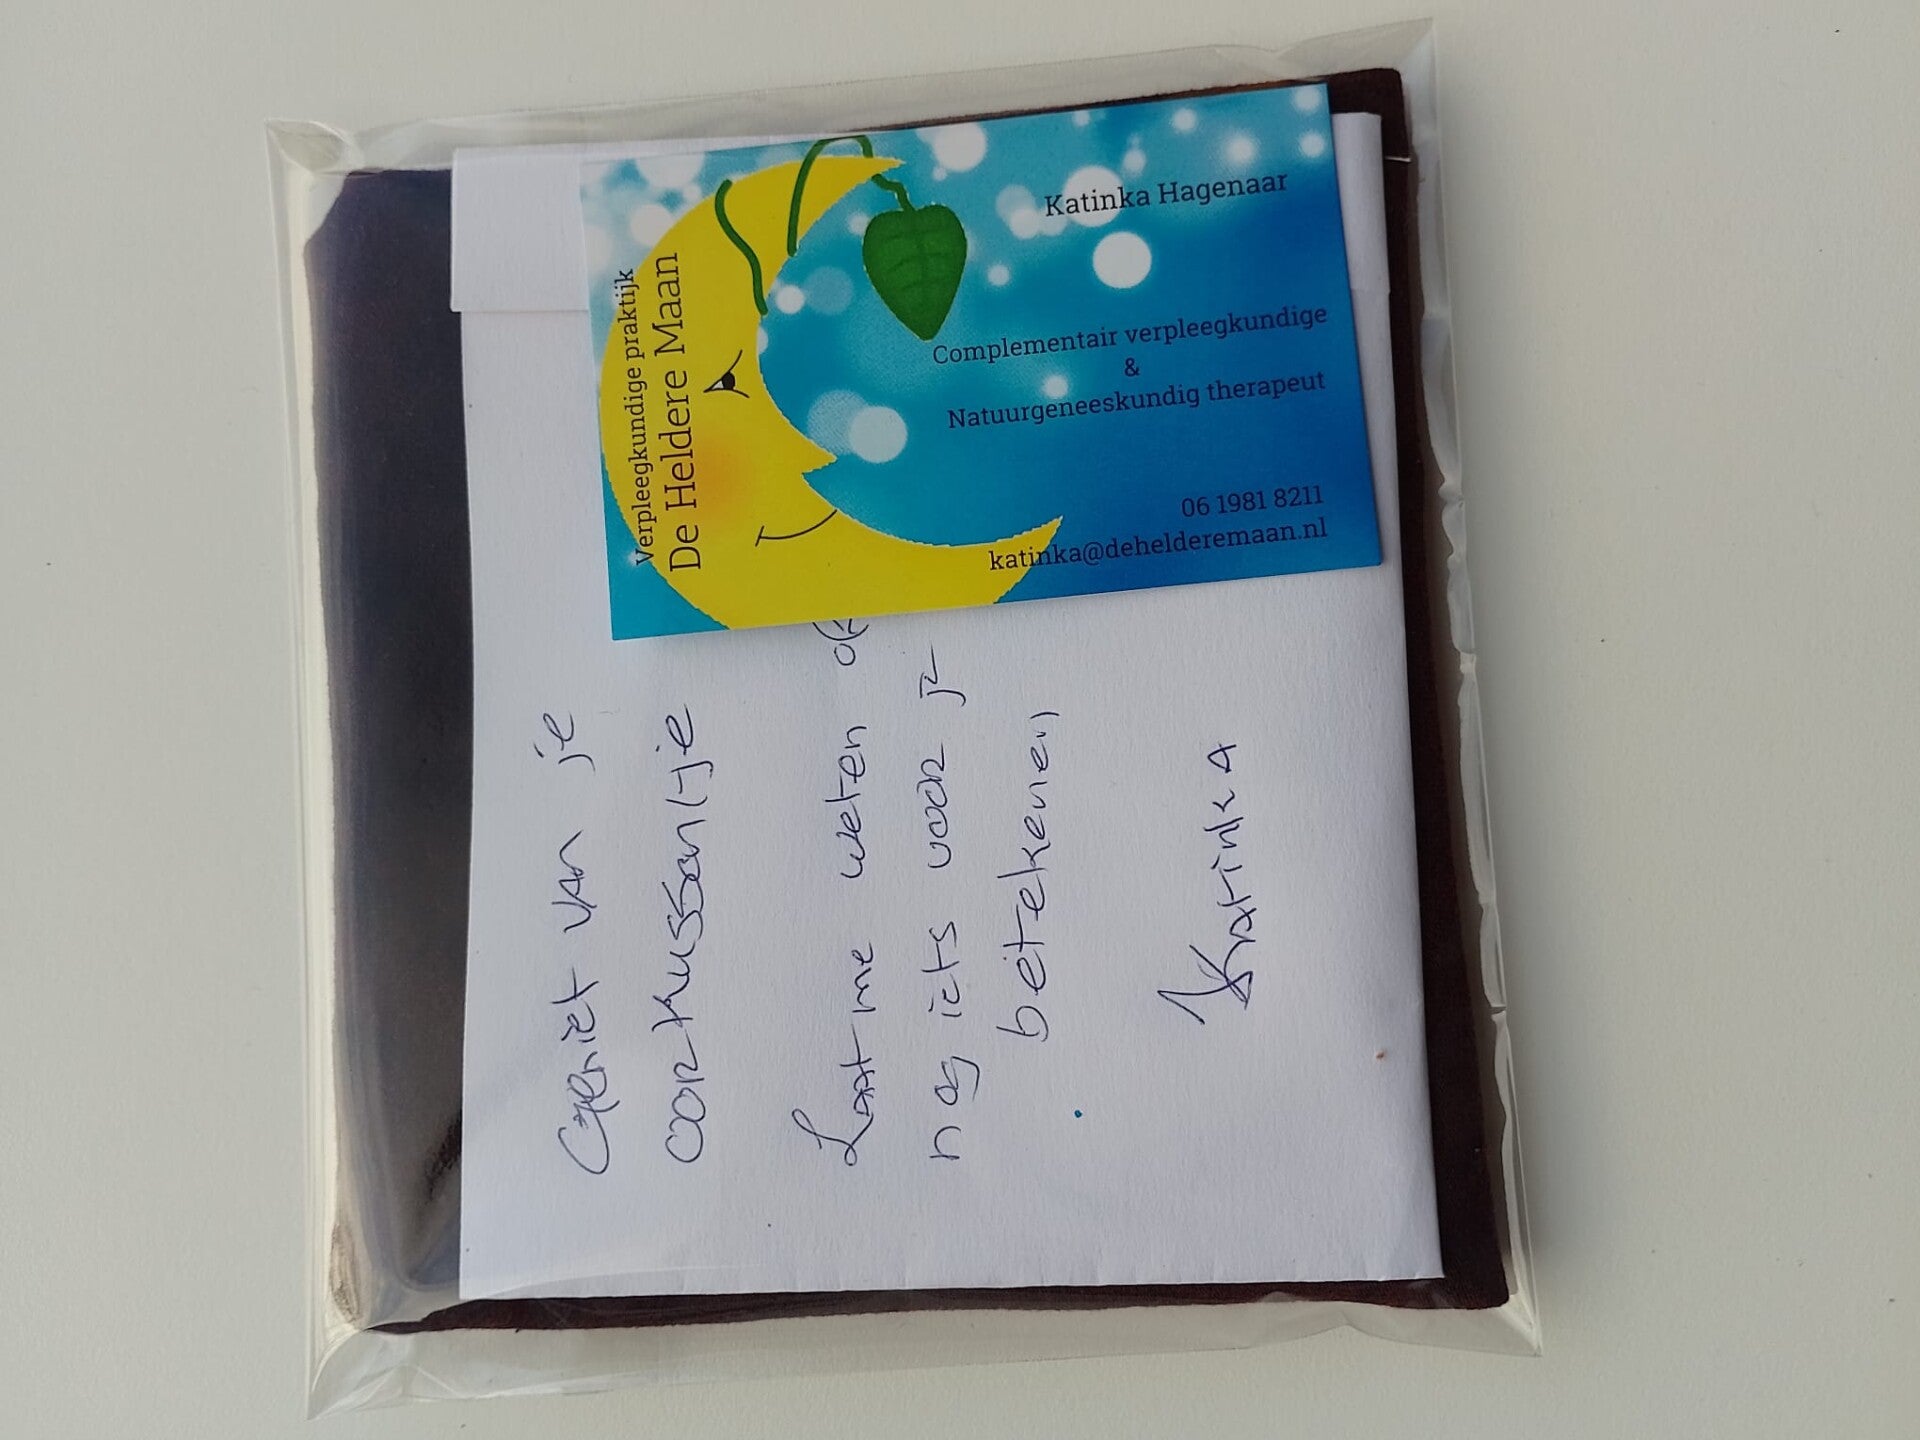 Verpleegkundige praktijk
De Heldere Maan
Katinka Hagenaar
Complementair verpleegkundige
&
Natuurgeneeskundig therapeut
06 1981 8211
katinka@dehelderemaan.nl
Geniet van je
oorkussentje
Laat me weten
nog iets voor je
betekenen
Katinka